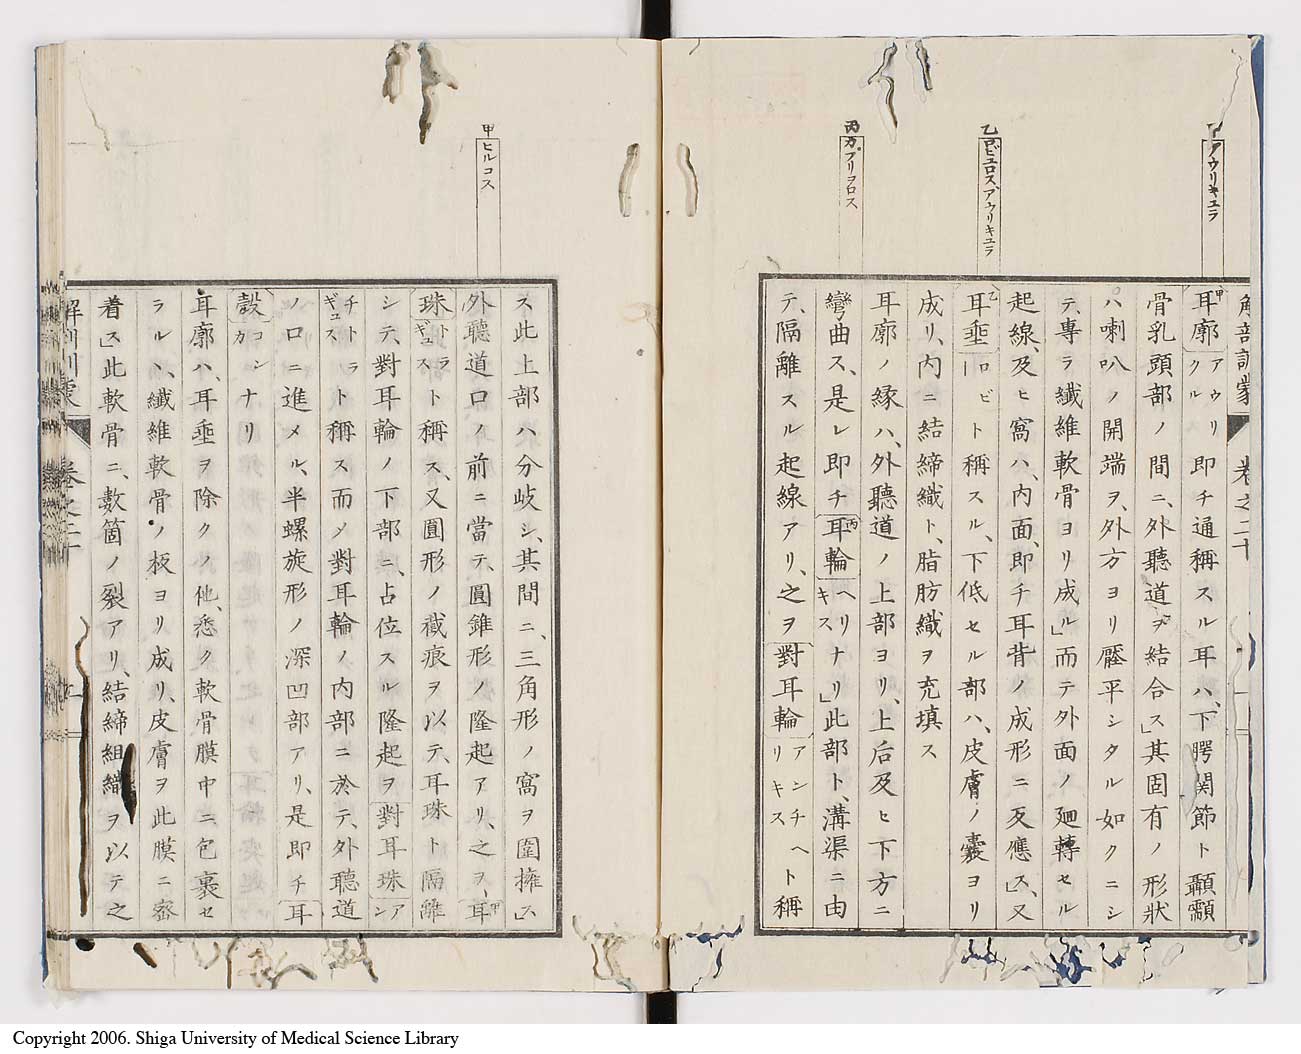 甲アウリキュラ
乙ロビュロス、アウリキュラ
丙カプリヲロス
解剖訓蒙 卷之二十 一
耳廓アウリクル即チ通稱スル耳ハ、下腭関節ト顳顬
骨乳頭部ノ間ニ、外聽道ヲ結合ス」其固有ノ形狀
ハ喇叭ノ開端ヲ、外方ヨリ壓平シタル如クニシ
テ、專ラ纖維軟骨ヨリ成ル」而テ外面ノ廻轉セル
起線、及ヒ窩ハ、内面、即チ耳背ノ成形ニ反應ス」、又
耳埀ロビト稱スル、下低セル部ハ、皮膚ノ囊ヨリ
成リ、内ニ結締織ト、脂肪織ヲ充填ス
耳廓ノ緣ハ、外聽道ノ上部ヨリ、上后及ヒ下方ニ
彎曲ス、是レ即チ耳輪ヘリキスナリ」此部ト、溝渠ニ由
テ、隔離スル起線アリ、之ヲ對耳輪アンチヘリキスト稱
甲ヒルコス
ス此上部ハ分岐シ、其間ニ、三角形ノ窩ヲ圍擁ス」
外聽道口ノ前ニ當テ、圓錐形ノ隆起アリ、之ヲ、耳
珠トラギュスト稱ス、又圓形ノ痕ヲ以テ、耳珠ト隔離
シテ、對耳輪ノ下部ニ、占位スル隆起ヲ對耳珠アン
チトラギュスト稱ス而メ對耳輪ノ内部ニ於テ、外聽道
ノ口ニ進メル、半螺旋形ノ深凹部アリ、是即チ耳
殼コンカナリ
耳廓ハ、耳埀ヲ除クノ他、悉ク軟骨膜中ニ包裹セ
ラル、纖維軟骨ノ板ヨリ成リ、皮膚ヲ此膜ニ密
着ス」此軟骨ニ、數箇ノ裂アリ、結締組織ヲ以テ之
卷之二十
Copyright 2006. Shiga University of Medical Science Library